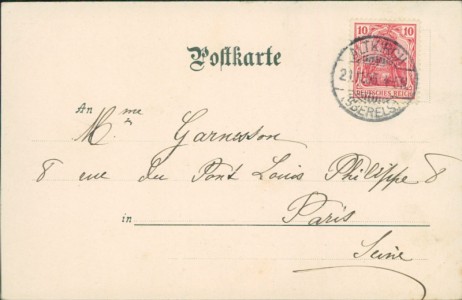 10 10
DEUTSCHES REICH
ALTKIRCH
(OBERELS.)
Postkarte
An
Mme Garnesson
8 rue du Pont Louis Philippe 8
in Paris
Seine